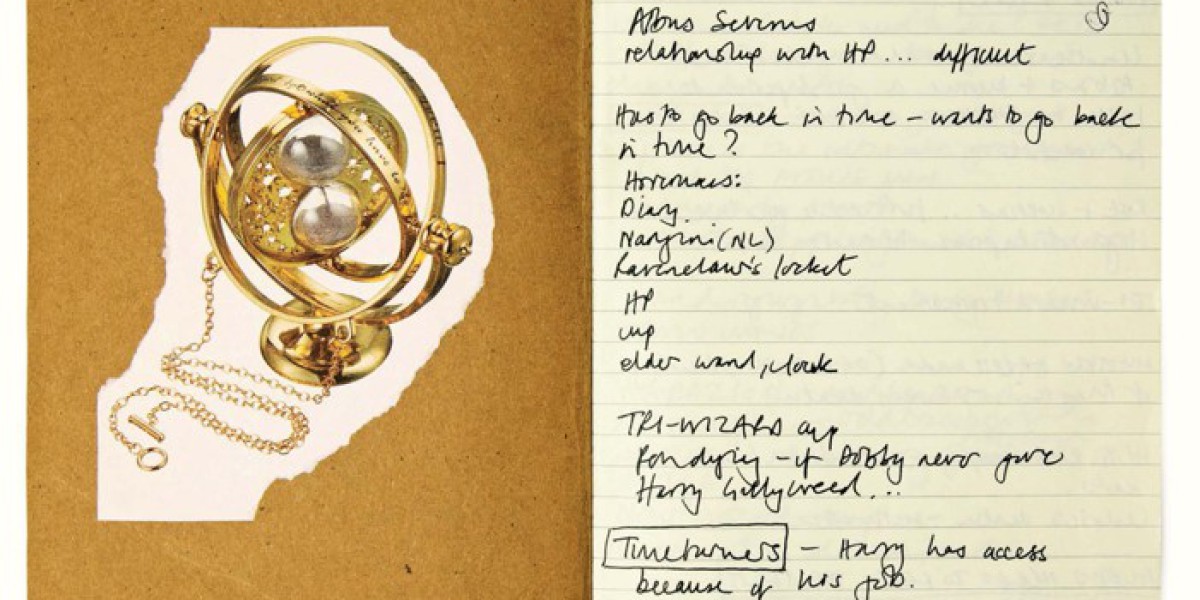 Albus Severus
relationship with HP... difficult
Has to go back in time – wants to go back
in time?
Horcruxes:
Diary.
Nagini (NL)
Ravenclaw's locket
HP
cup
elder wand, cloak
TRI-WIZARD cup
Ron dying – if Dobby never gave
Harry Gillyweed...
Timeturners – Harry has access
because of his job.